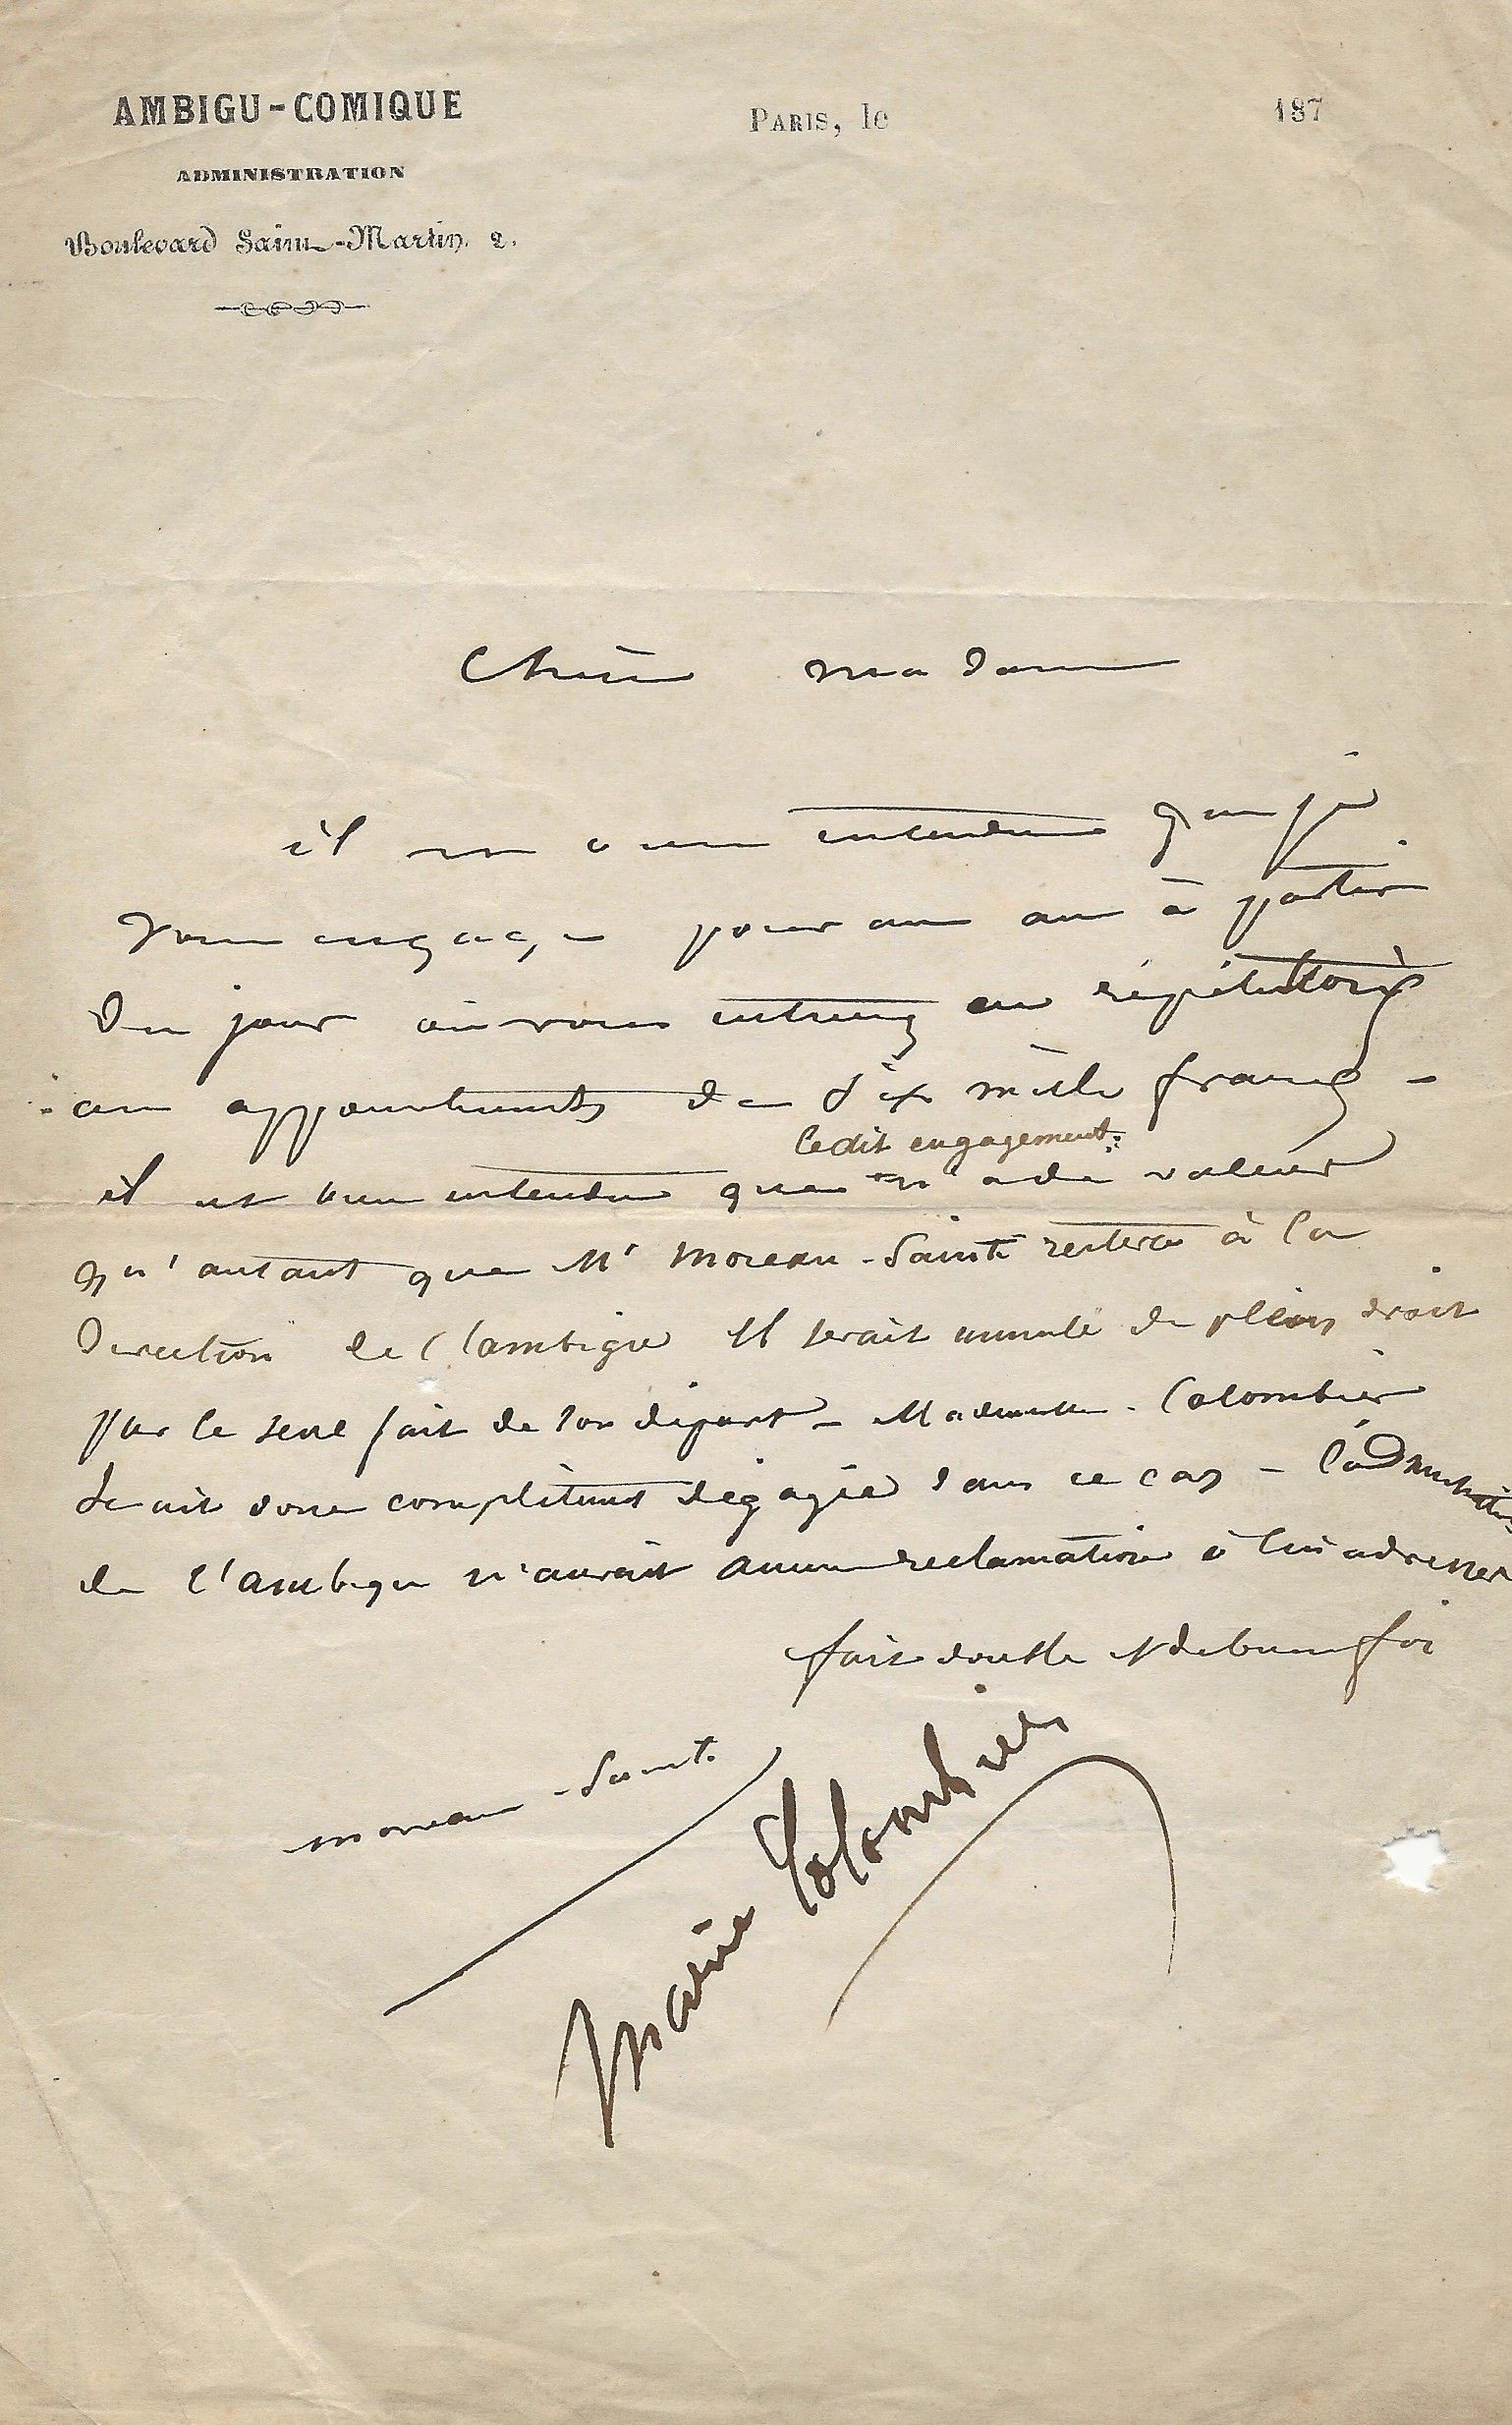 AMBIGU-COMIQUE
ADMINISTRATION
Boulevard Saint-Martin, 2.
PARIS, le 187
Chère madame
il est bien entendu que je
vous engage pour un an à partir
du jour où vous entrerez en répétitions
aux appointements de dix mille francs -
ledit engagement
il est bien entendu que n'a de valeur
qu'autant que Mr Moreau-Sainti restera à la
direction de l'ambigu Il serait annulé de plein droit
par le seul fait de son départ - Mademoiselle Colombier
serait donc complètement dégagée dans ce cas - l'administration
de l'Ambigu n'aurait aucune reclamation à lui adresser
fait double et de bonne foi
moreau-Sainti
Marie Colombier